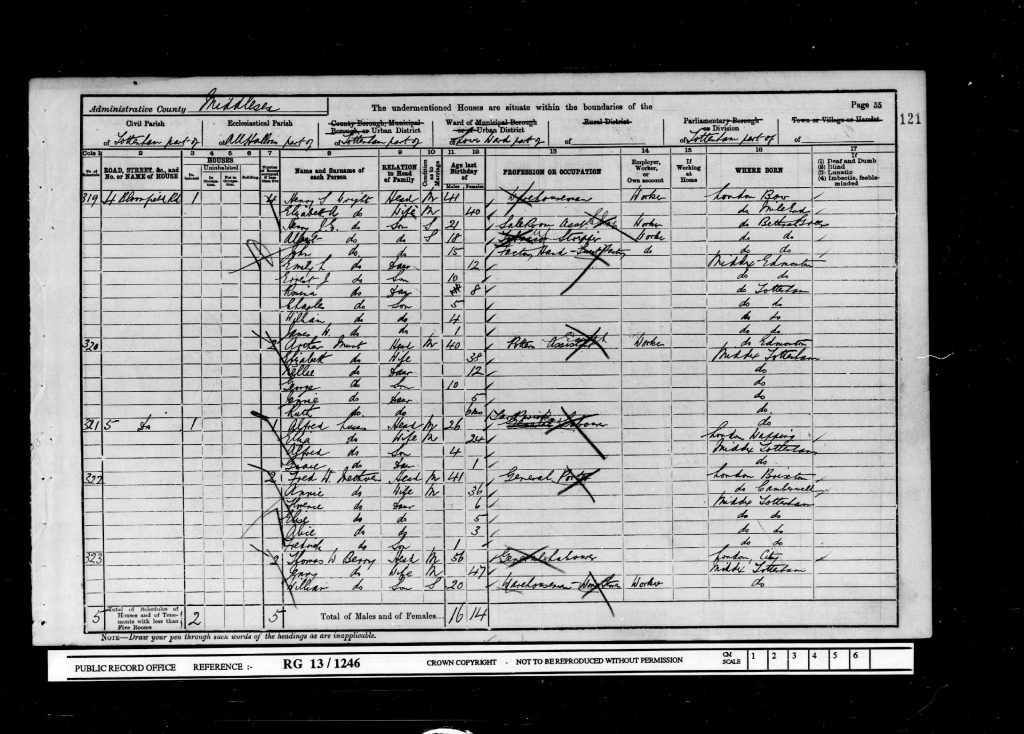 Administrative County Middlesex
The undermentioned Houses are situate within the boundaries of the
Page 55
121
Civil Parish
of Tottenham part of
Ecclesiastical Parish
of All Hallows part of
County Borough, Municipal Borough, or Urban District
of Tottenham part of
Ward of Municipal Borough or of Urban District
of part of
Rural District
of
Parliamentary Borough or Division
of Tottenham part of
Town or Village or Hamlet
of
Cols 1 2 3 4 5 6 7 8 9 10 11 12 13 14 15 16 17
No. of Schedule
ROAD, STREET, &c., and No. or NAME of HOUSE
HOUSES
Inhabited
Uninhabited
In Occupation
Not in Occupation
Building
Number of Rooms occupied if less than five
Name and Surname of each Person
RELATION to Head of Family
Condition as to Marriage
Age last Birthday of
Males Females
PROFESSION OR OCCUPATION
Employer, Worker, or Own account
If Working at Home
WHERE BORN
If
(1) Deaf and Dumb
(2) Blind
(3) Lunatic
(4) Imbecile, feeble-minded
319 4 1 4 Henry Wright Head M 41 Warehouseman Worker London Bow
Elizabeth A do Wife M 40 do Mile End
Henry do Son S 21 Worker do Bethnal Green
Albert do do S 18 Stripper Worker do do
John do do 15 Factory Hand do do do
Emily L do Daur 12 Middx Edmonton
Ernest J do Son 10 do do
Rosina do Daur 8 do Tottenham
Charles do Son 5 do do
William do do 4 do do
James W. do do 1 do do
320 Head M 40 Assistant Worker do Edmonton
Elizabeth do Wife 38 Middx Tottenham
Nellie do Daur 12 do
George do Son 10 do
do Daur 5 do
Ruth do do 6mo do
321 5 Do 1 1 Alfred Head M 26 Labourer do
do Wife M 24 London Wapping
Alfred do Son 4 Middx Tottenham
Grace do Daur 1 do
322 2 Fred W. Head M 41 General Porter London Brixton
Annie do Wife M 36 do Camberwell
Florence do Daur 6 Middx Tottenham
Elsie do do 5 do do
do do 3 do do
do Son 1 do do
323 2 Thomas W Berry Head M 56 General Labourer London City
do Wife M 47 Middx Tottenham
William do Son S 20 Warehouseman Worker do
5 Total of Schedules of Houses and of Tenements with less than Five Rooms 2 5 Total of Males and of Females... 16 14
NOTE—Draw your pen through such words of the headings as are inapplicable.
PUBLIC RECORD OFFICE REFERENCE :- RG 13/1246 CROWN COPYRIGHT - NOT TO BE REPRODUCED WITHOUT PERMISSION CM SCALE 1 2 3 4 5 6